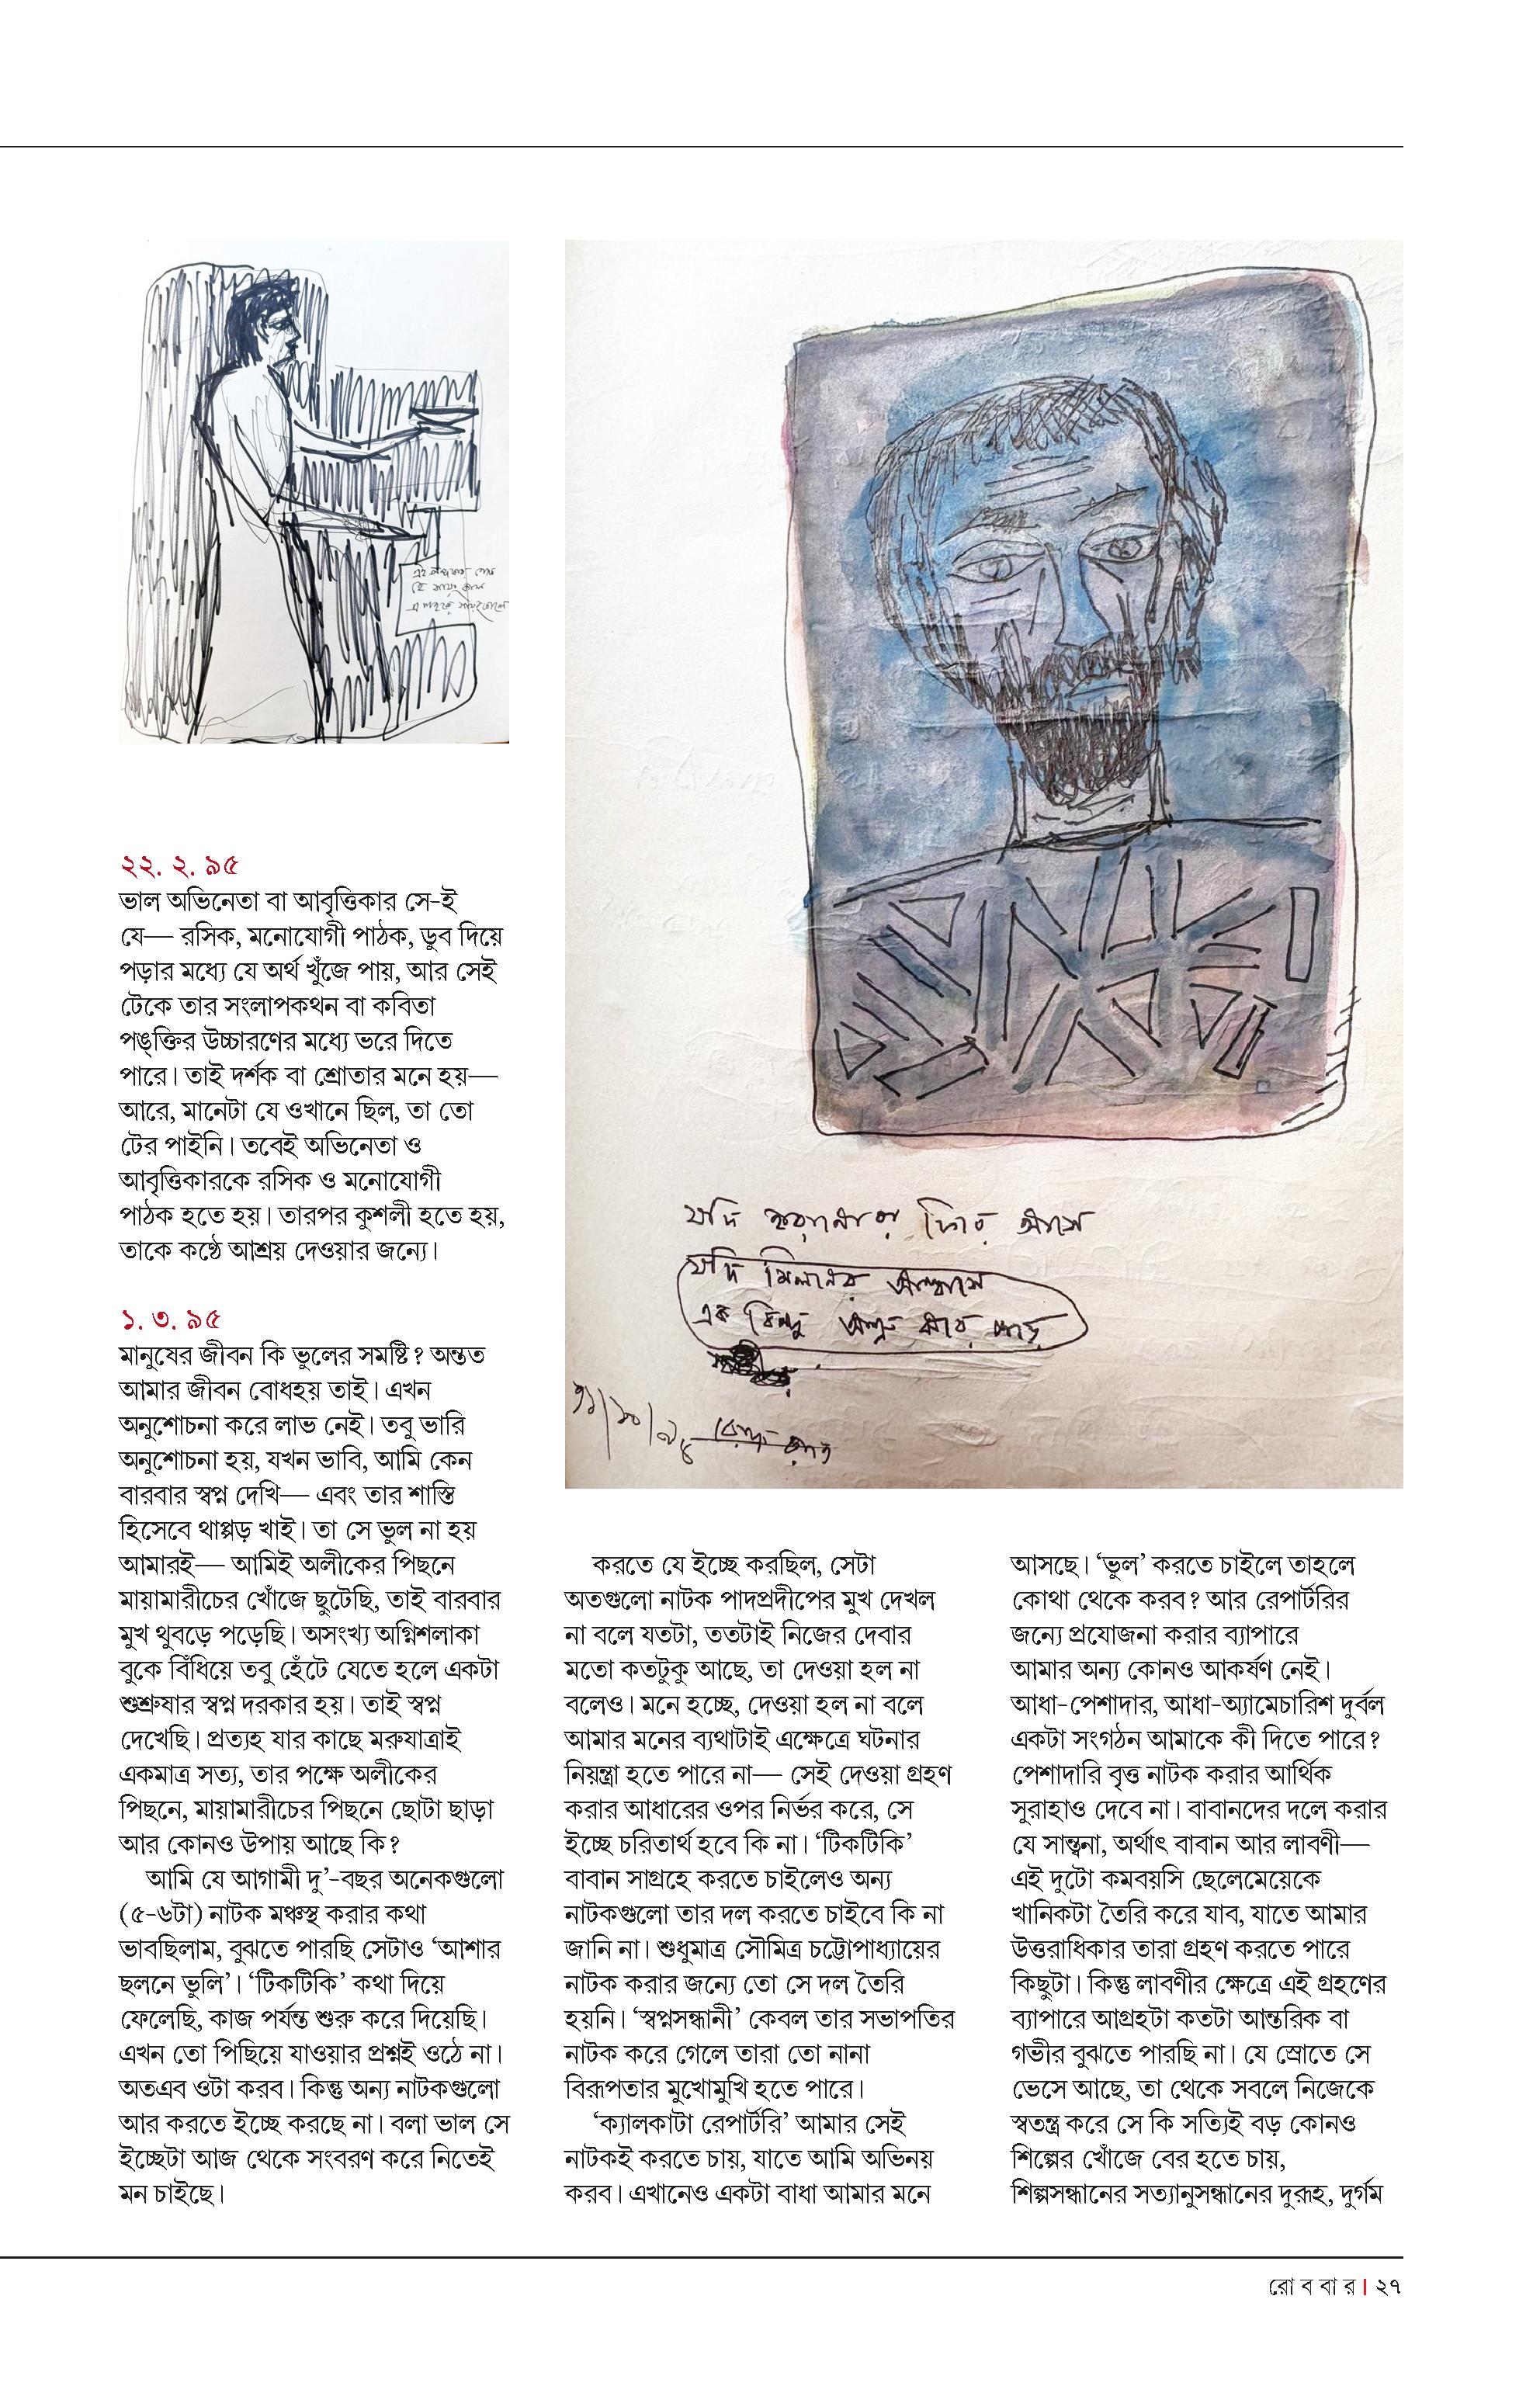 ২২. ২. ৯৫
ভাল অভিনেতা বা আবৃত্তিকার সে-ই
যে— রসিক, মনোযোগী পাঠক, ডুব দিয়ে
পড়ার মধ্যে যে অর্থ খুঁজে পায়, আর সেই
টেকে তার সংলাপকথন বা কবিতা
পঙ্‌ক্তির উচ্চারণের মধ্যে ভরে দিতে
পারে। তাই দর্শক বা শ্রোতার মনে হয়—
আরে, মানেটা যে ওখানে ছিল, তা তো
টের পাইনি। তবেই অভিনেতা ও
আবৃত্তিকারকে রসিক ও মনোযোগী
পাঠক হতে হয়। তারপর কুশলী হতে হয়,
তাকে কণ্ঠে আশ্রয় দেওয়ার জন্যে।
১. ৩. ৯৫
মানুষের জীবন কি ভুলের সমষ্টি? অন্তত
আমার জীবন বোধহয় তাই। এখন
অনুশোচনা করে লাভ নেই। তবু ভারি
অনুশোচনা হয়, যখন ভাবি, আমি কেন
বারবার স্বপ্ন দেখি— এবং তার শাস্তি
হিসেবে থাপ্পড় খাই। তা সে ভুল না হয়
আমারই— আমিই অলীকের পিছনে
মায়ামারীচের খোঁজে ছুটেছি, তাই বারবার
মুখ থুবড়ে পড়েছি। অসংখ্য অগ্নিশলাকা
বুকে বিঁধিয়ে তবু হেঁটে যেতে হলে একটা
শুশ্রুষার স্বপ্ন দরকার হয়। তাই স্বপ্ন
দেখেছি। প্রত্যহ যার কাছে মরুযাত্রাই
একমাত্র সত্য, তার পক্ষে অলীকের
পিছনে, মায়ামারীচের পিছনে ছোটা ছাড়া
আর কোনও উপায় আছে কি?
আমি যে আগামী দু’-বছর অনেকগুলো
(৫-৬টা) নাটক মঞ্চস্থ করার কথা
ভাবছিলাম, বুঝতে পারছি সেটাও ‘আশার
ছলনে ভুলি’। ‘টিকটিকি’ কথা দিয়ে
ফেলেছি, কাজ পর্যন্ত শুরু করে দিয়েছি।
এখন তো পিছিয়ে যাওয়ার প্রশ্নই ওঠে না।
অতএব ওটা করব। কিন্তু অন্য নাটকগুলো
আর করতে ইচ্ছে করছে না। বলা ভাল সে
ইচ্ছেটা আজ থেকে সংবরণ করে নিতেই
মন চাইছে।
যদি মিলনের
এক বিন্দু অশ্রু ঝরে পড়ে
করতে যে ইচ্ছে করছিল, সেটা
অতগুলো নাটক পাদপ্রদীপের মুখ দেখল
না বলে যতটা, ততটাই নিজের দেবার
মতো কতটুকু আছে, তা দেওয়া হল না
বলেও। মনে হচ্ছে, দেওয়া হল না বলে
আমার মনের ব্যথাটাই এক্ষেত্রে ঘটনার
নিয়ন্ত্রা হতে পারে না— সেই দেওয়া গ্রহণ
করার আধারের ওপর নির্ভর করে, সে
ইচ্ছে চরিতার্থ হবে কি না। ‘টিকটিকি’
বাবান সাগ্রহে করতে চাইলেও অন্য
নাটকগুলো তার দল করতে চাইবে কি না
জানি না। শুধুমাত্র সৌমিত্র চট্টোপাধ্যায়ের
নাটক করার জন্যে তো সে দল তৈরি
হয়নি। ‘স্বপ্নসন্ধানী’ কেবল তার সভাপতির
নাটক করে গেলে তারা তো নানা
বিরূপতার মুখোমুখি হতে পারে।
‘ক্যালকাটা রেপার্টরি’ আমার সেই
নাটকই করতে চায়, যাতে আমি অভিনয়
করব। এখানেও একটা বাধা আমার মনে
আসছে। ‘ভুল’ করতে চাইলে তাহলে
কোথা থেকে করব? আর রেপার্টরির
জন্যে প্রযোজনা করার ব্যাপারে
আমার অন্য কোনও আকর্ষণ নেই।
আধা-পেশাদার, আধা-অ্যামেচারিশ দুর্বল
একটা সংগঠন আমাকে কী দিতে পারে?
পেশাদারি বৃত্ত নাটক করার আর্থিক
সুরাহাও দেবে না। বাবানদের দলে করার
যে সান্ত্বনা, অর্থাৎ বাবান আর লাবণী—
এই দুটো কমবয়সি ছেলেমেয়েকে
খানিকটা তৈরি করে যাব, যাতে আমার
উত্তরাধিকার তারা গ্রহণ করতে পারে
কিছুটা। কিন্তু লাবণীর ক্ষেত্রে এই গ্রহণের
ব্যাপারে আগ্রহটা কতটা আন্তরিক বা
গভীর বুঝতে পারছি না। যে স্রোতে সে
ভেসে আছে, তা থেকে সবলে নিজেকে
স্বতন্ত্র করে সে কি সত্যিই বড় কোনও
শিল্পের খোঁজে বের হতে চায়,
শিল্পসন্ধানের সত্যানুসন্ধানের দুরূহ, দুর্গম
রোববার। ২৭